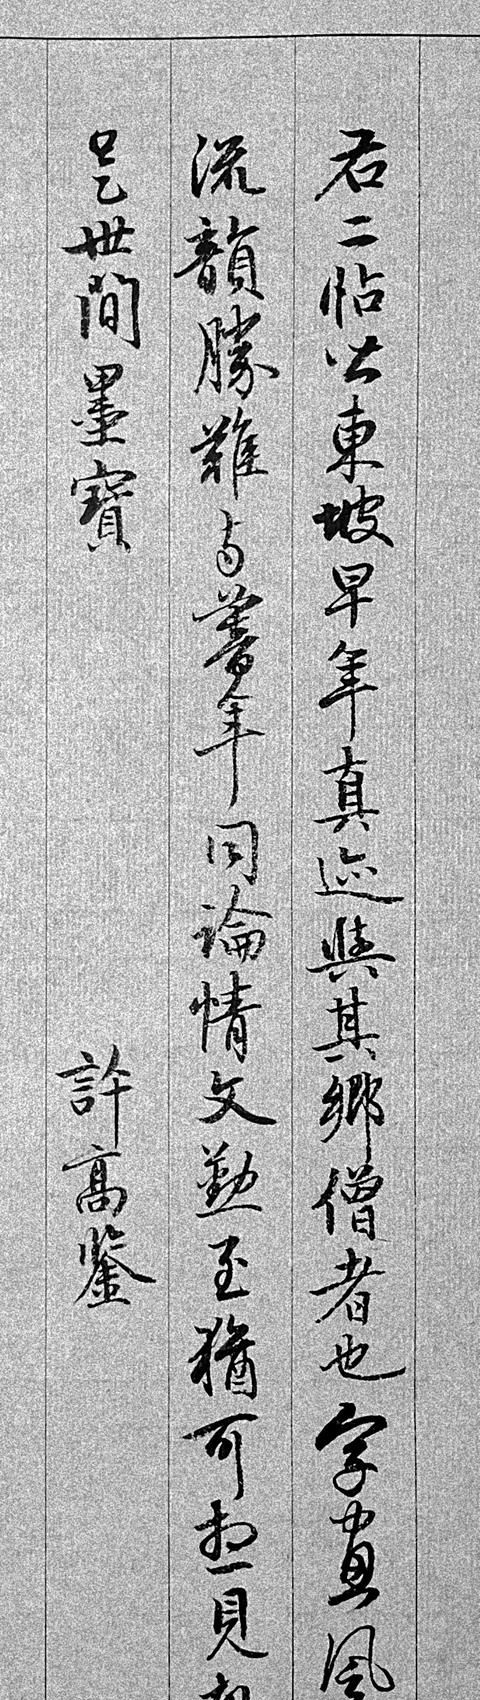 君二帖皆東坡早年真迹與其鄉僧者也字畫風
流韻勝難与暮年同論情文勤至猶可想見
是世間墨寶
許高鑒